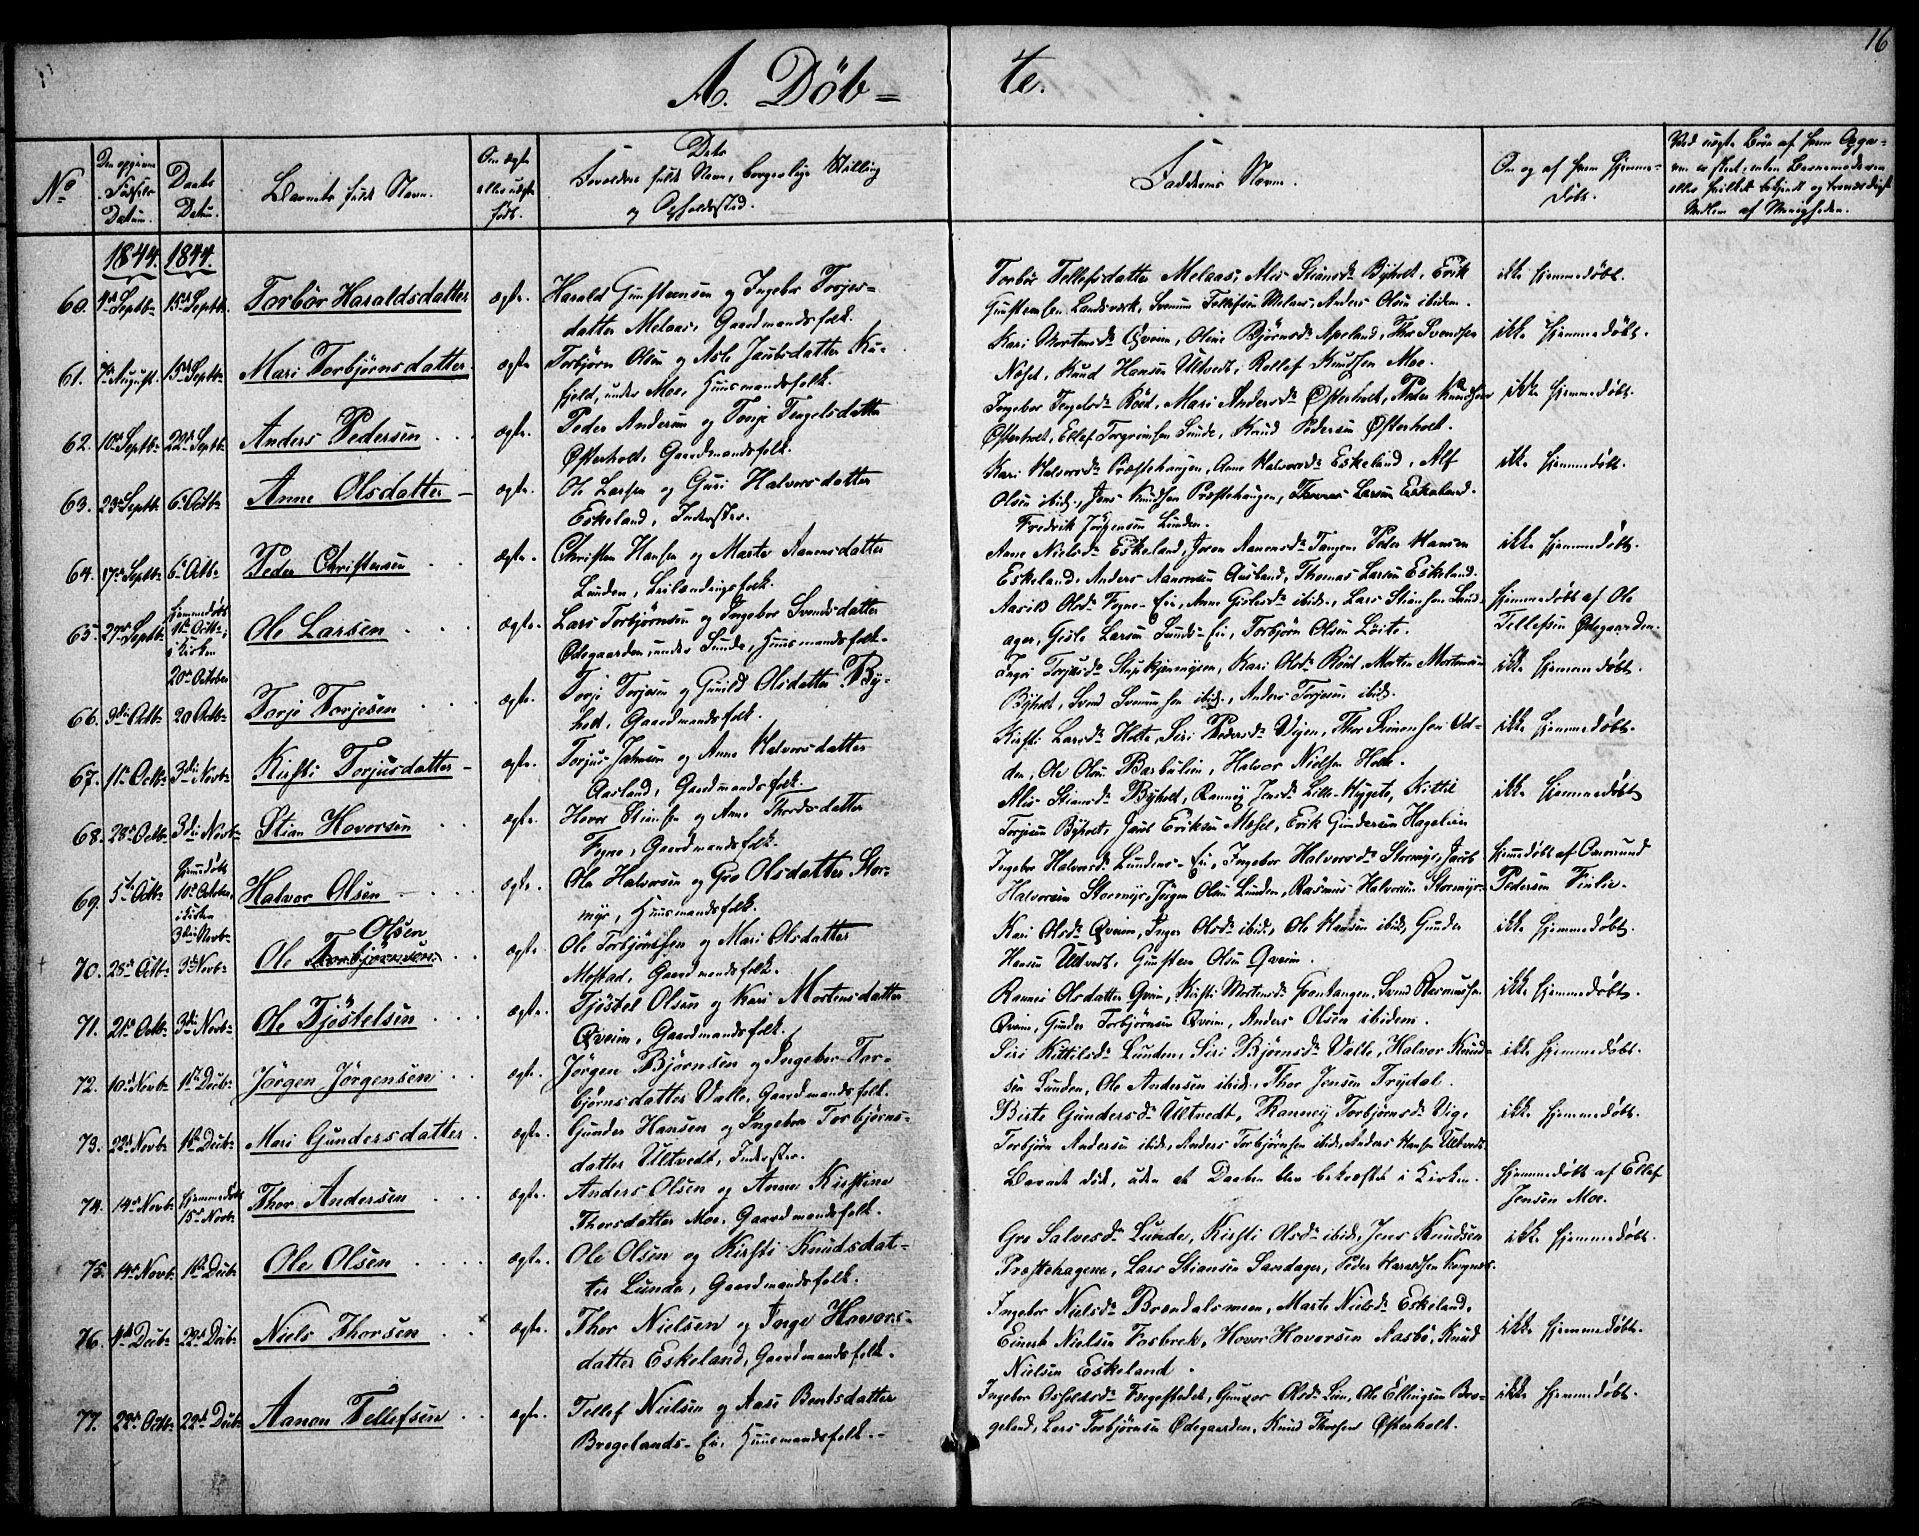 16
A. Döb=
te.
No
Den opgivne Födsels Datum.
Daabs Datum.
Barnets fulde Navn.
Om ægte eller uægte födt.
Döbtes Forældres fulde Navn, borgerlige Stilling og Opholdssted.
Faddernes Navne.
Om og af hvem hjemme-döbt.
1844. 1844.
60. 4de Septb: 15de Septb. Torbör Haraldsdatter ægte. Harald Gunsteensen og Ingebor Torjes-
datter Melaas, Gaardmandsfolk.
Torbör Tellefsdatter Melaas, Alis Stiansd: Byholt, Erik
Gunsteensen Landsværk, Svenum Tellefsen Melaas, Anders Olsen ibidem.
ikke hjemmedöbt.
61. 7de August. 15de Septb: Mari Torbjörnsdatter ægte Torbjörn Olsen og Asle Jacobsdatter Ku-
fjeld, under Moe, Huusmandsfolk.
Kari Mortensd: Qveim, Oline Björnsd: Apeland, Thor Svendsen
Næset, Knud Hansen Ultvedt, Rollef Knudsen Moe.
ikke hjemmedöbt.
62. 10de Septb: 22de Septb: Anders Pedersen ægte. Peder Andersen og Torje Tengelsdatter
Østerholt, Gaardmandsfolk.
Ingebor Tengelsd: Röed, Mari Andersd: Østerholt, Peder Knudsen
Østerholt, Ellef Torgrimsen Sunde, Knud Pedersen Østerholt.
ikke hjemmedöbt.
63. 23de Septb: 6te Octb: Anne Olsdatter ægte. Ole Larsen og Guri Halvorsdatter
Eskeland, Inderster.
Kari Halvorsd: Præstehaugen, Anne Halvorsd: Eskeland, Alf
Olsen ibid., Jens Knudsen Præstehaugen, Thomas Larsen Eskeland.
Fredrik Jörgensen Lunden.
ikke hjemmedöbt.
64. 17de Septb: 6te Octb: Peder Christensen ægte. Christen Hansen og Marte Aanonsdatter
Lunden, Leilændingsfolk.
Anne Nielsd: Eskeland, Joren Aanonsd: Tangen, Peder Hansen
Eskeland, Anders Aanonsen Ausland, Thomas Larsen Eskeland.
ikke hjemmedöbt.
65. 27de Septb: hjemmedöbt 11te Octb: i Kirken 20de October Ole Larsen ægte. Lars Torbjörnsen og Ingebor Svendsdatter
Ødegaarden under Sunde, Huusmandsfolk.
Aasild Olsd: Fogne-Eie, Anne Gislesd: ibid., Lars Stiansen Sand-
ager, Gisle Larsen Sunds-Eie, Torbjörn Olsen Löite.
hjemmedöbt af Ole
Tellefsen Ødegaarden.
66. 3die Octb: 20 Octb: Torje Torjesen ægte. Torje Torjesen og Gunild Olsdatter By-
holt, Gaardmandsfolk.
Kari Olsd: Röed, Morten Mortensen
Byholt, Svend Svenumsen ibid., Anders Torjesen ibid.
ikke hjemmedöbt.
67. 11te Octb: 3die Novb: Kirsti Torjusdatter ægte. Torjus Jahnsen og Anne Halvorsdatter
Aasland, Gaardmandsfolk.
Kirsti Larsd: Holte, Siri Pedersd: Vigen, Thor Simonsen Od-
den, Ole Olsen Barbulien, Halvor Nielsen Holte.
ikke hjemmedöbt.
68. 28de Octb: 3die Novb: Stian Hovorsen ægte. Hovor Stiansen og Anne Thordsdatter
Fogne, Gaardmandsfolk.
Alis Stiansd: Byholt, Rannei Jensd: Lille-Hygete, Kittil
Torjesen Byholt, Jacob Eriksen Mæsel, Erik Gundersen Hagelien
ikke hjemmedöbt
69. 5te Octb: hjemmedöbt 10de October, i Kirken 3die Novb: Halvor Olsen ægte. Ole Halvorsen og Gro Olsdatter Stor-
myr, Huusmandsfolk.
Ingebor Halvorsd: Lundens-Eie, Ingebor Halvorsd: Stormyr, Jacob
Halvorsen Stormyr, Jörgen Olsen Lunden, Rasmus Halvorsen Stormyr.
hjemmedöbt af Omund
Pedersen Vinlie.
70. 28de Octb: 3die Novb: Ole Torbjörnsen Olsen ægte. Ole Torbjörnsen og Mari Olsdatter
Mostad, Gaardmandsfolk.
Kari Olsd: Qveim, Inger Olsd: ibid., Ole Hansen ibid., Gunder
Hansen Ultvedt, Gunsteen Olsen Qveim.
ikke hjemmedöbt.
71. 21de Octb: 3die Novb: Ole Tjöstelsen ægte. Tjöstel Olsen og Kari Mortensdatter
Qveim, Gaardmandsfolk.
Rannei Olsdatter Qveim, Kirsti Mortensd: Grantangen, Svend Rasmussen
Qveim, Gunder Torbjörnsen Qveim, Anders Olsen ibidem.
ikke hjemmedöbt.
72. 10de Novb: 1ste Decb: Jörgen Jörgensen ægte. Jörgen Björnsen og Ingebor Tor-
björnsdatter Valle, Gaardmandsfolk.
Siri Kittilsd: Lunden, Siri Björnsd: Valle, Halvor Knud-
sen Lunden, Ole Andersen ibid., Thor Jensen Trydal.
ikke hjemmedöbt.
73. 22de Novb: 1ste Decb: Mari Gundersdatter ægte. Gunder Hansen og Ingebor Torbjörns-
datter Ultvedt, Inderster.
Birte Gundersd: Ultvedt, Rannei Torbjörnsd: Vige,
Torbjörn Andersen ibid., Anders Torbjörnsen ibid., Anders Hansen Ultvedt
ikke hjemmedöbt.
74. 14de Novb: hjemmedöbt 15de Novb: Thor Andersen ægte. Anders Olsen og Anne Kirstine
Thorsdatter Moe, Gaardmandsfolk.
Barnet död, uden at Daaben blev bekræftet i Kirken.
hjemmedöbt af Ellef
Jensen Moe.
75. 14de Novb: 1ste Decb: Ole Olsen ægte. Ole Olsen og Kirsti Knudsdat-
ter Lunde, Gaardmandsfolk.
Gro Salvesd: Lunde, Kirsti Olsd: ibid., Jens Knudsen
Præstehagene, Lars Stiansen Sandager, Peder Haraldsen
ikke hjemmedöbt.
76. 4de Decb: 22de Decb: Niels Thorsen ægte. Thor Nielsen og Inge Hovors-
datter Eskeland, Gaardmandsfolk.
Ingebor Nielsd: Brændalsmoen, Marte Nielsd: Eskeland,
Einert Nielsen Fosbrek, Hovor Hovorsen Aasbö, Knud
Nielsen Eskeland.
ikke hjemmedöbt.
77. 22de Octb: 22de Decb: Aanon Tellefsen ægte. Tellef Nielsen og Aase Bentsdatter
Bregelands-Eie, Huusmandsfolk.
Ingebor Osfoldsd: Fogestedet, Gunvor Olsd: Lien, Ole Ellingsen Bre-
geland, Lars Torbjörnsen Ødegaarden, Knud Thorsen Østerholt.
ikke hjemmedöbt.